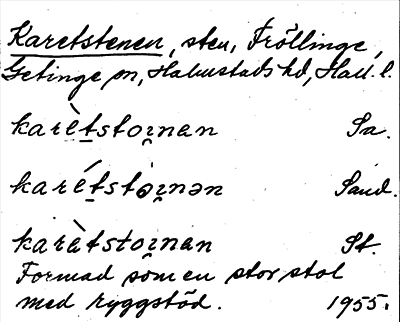 Karetstenen, sten, Fröllinge,
Getinge sn, Halmstads hd, Hall. l.
karèt̠stoı̯nen Sa.
karét̠stoı̯nən Sand.
karèt̠stoı̯nen St.
Formad som en stor stol
med ryggstöd. 1955.